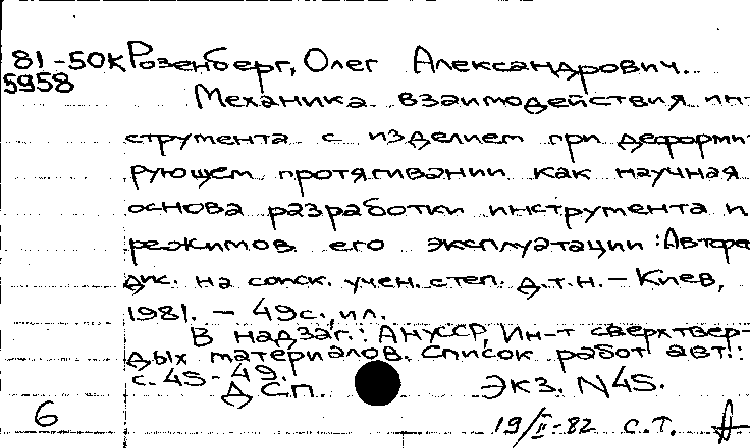 81-50К Розенберг, Олег Александрович.
5958
Механика взаимодействия ин-
струмента с изделием при деформи-
рующем протягивании как научная
основа разработки инструмента и
режимов его эксплуатации: Авторе
дис. на соиск. учен. степ. д.т.н. – Киев,
1981. – 49с., ил.
В надзаг.: АН УССР, Ин-т сверхтвер-
дых материалов. Список работ авт.:
с. 45-49.
ДСП. Экз. N45.
6
19/II-82 С.Т.